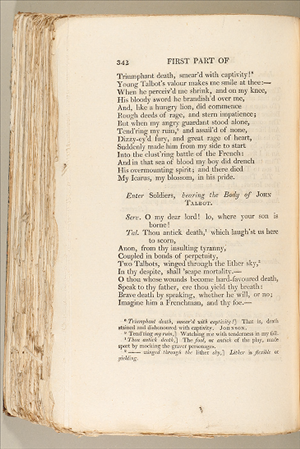 342 FIRST PART OF
Triumphant death, smear'd with captivity!⁴
Young Talbot's valour makes me smile at thee:—
When he perceiv'd me shrink, and on my knee,
His bloody sword he brandish'd over me,
And, like a hungry lion, did commence
Rough deeds of rage, and stern impatience;
But when my angry guardant stood alone,
Tend'ring my ruin,⁵ and assail'd of none,
Dizzy-ey'd fury, and great rage of heart,
Suddenly made him from my side to start
Into the clust'ring battle of the French:
And in that sea of blood my boy did drench
His overmounting spirit; and there died
My Icarus, my blossom, in his pride.
Enter Soldiers, bearing the Body of JOHN
TALBOT.
Serv. O my dear lord! lo, where your son is
borne!
Tal. Thou antick death,⁷ which laugh'st us here
to scorn,
Anon, from thy insulting tyranny,
Coupled in bonds of perpetuity,
Two Talbots, winged through the lither sky,⁸
In thy despite, shall 'scape mortality.—
O thou whose wounds become hard-favoured death,
Speak to thy father, ere thou yield thy breath:
Brave death by speaking, whether he will, or no;
Imagine him a Frenchman, and thy foe.—
⁴ Triumphant death, smear'd with captivity!] That is, death
stained and dishonoured with captivity. JOHNSON.
⁵ Tend'ring my ruin,] Watching me with tenderness in my fall.
⁷ Thou antick death,] The fool, or antick of the play, made
sport by mocking the graver personages.
⁸ —— winged through the lither sky,] Lither is flexible or
yielding.